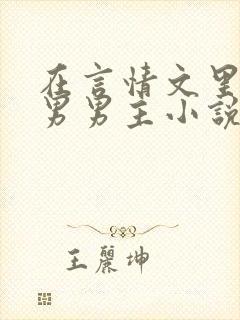 在言情文里
男男主小説
王麗坤